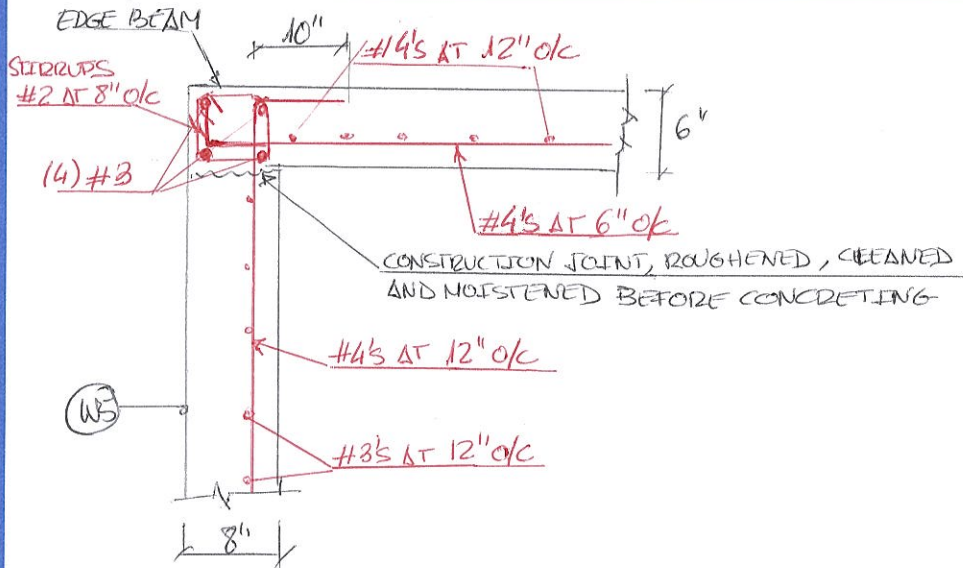 EDGE BEAM
10"
#4's AT 12" O/C
STIRRUPS
#2 AT 8" O/C
6"
(4) #3
#4's AT 6" O/C
CONSTRUCTION JOINT, ROUGHENED, CLEANED
AND MOISTENED BEFORE CONCRETING
#4's AT 12" O/C
W5
#3's AT 12" O/C
8"